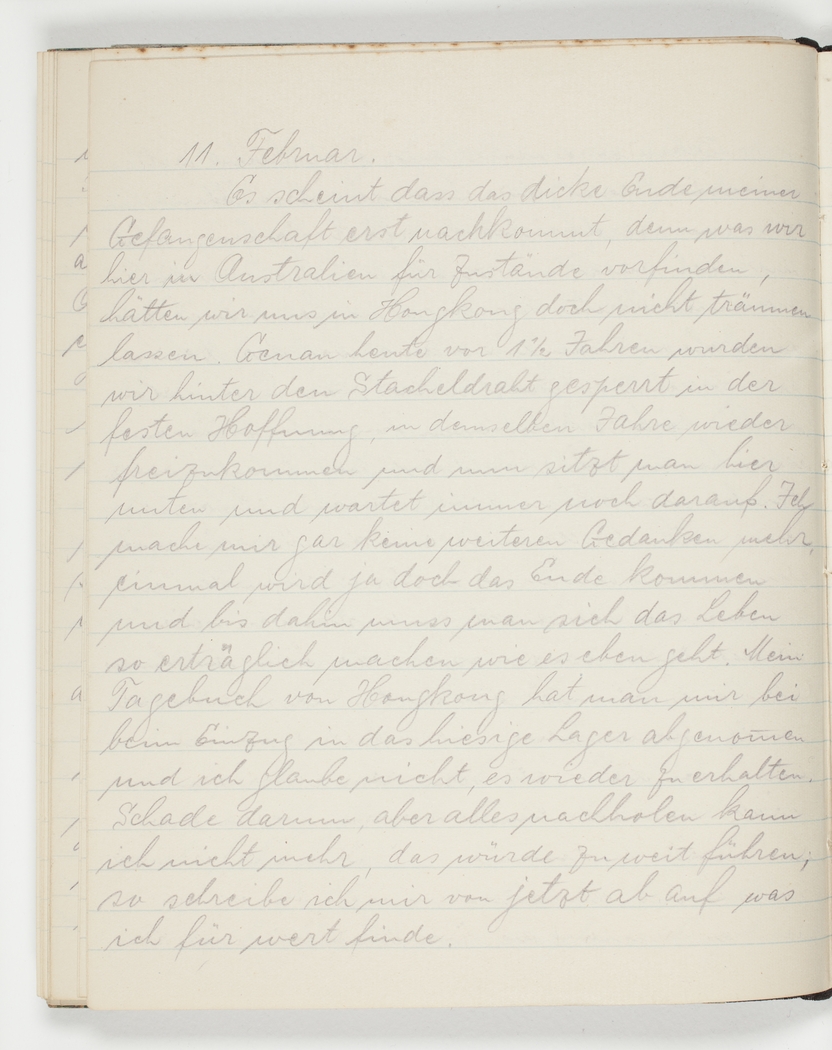 11. Februar.
Es scheint dass das dicke Ende meiner
Gefangenschaft erst nachkommt, denn was wir
hier in Australien für Zustände vorfinden,
hätten wir uns in Hongkong doch nicht träumen
lassen. Genau heute vor 1½ Jahren wurden
wir hinter den Stacheldraht gesperrt in der
festen Hoffnung, in demselben Jahre wieder
freizukommen und nun sitzt man hier
unten und wartet immer noch darauf. Ich
mache mir gar keine weiteren Gedanken mehr,
einmal wird ja doch das Ende kommen
und bis dahin muss man sich das Leben
so erträglich machen wie es eben geht. Mein
Tagebuch von Hongkong hat man mir bei
beim Einzug in das hiesige Lager abgenom̄en
und ich glaube nicht, es wieder zu erhalten.
Schade darum, aber alles nachholen kann
ich nicht mehr, das würde zu weit führen;
so schreibe ich mir von jetzt ab auf was
ich für wert finde.